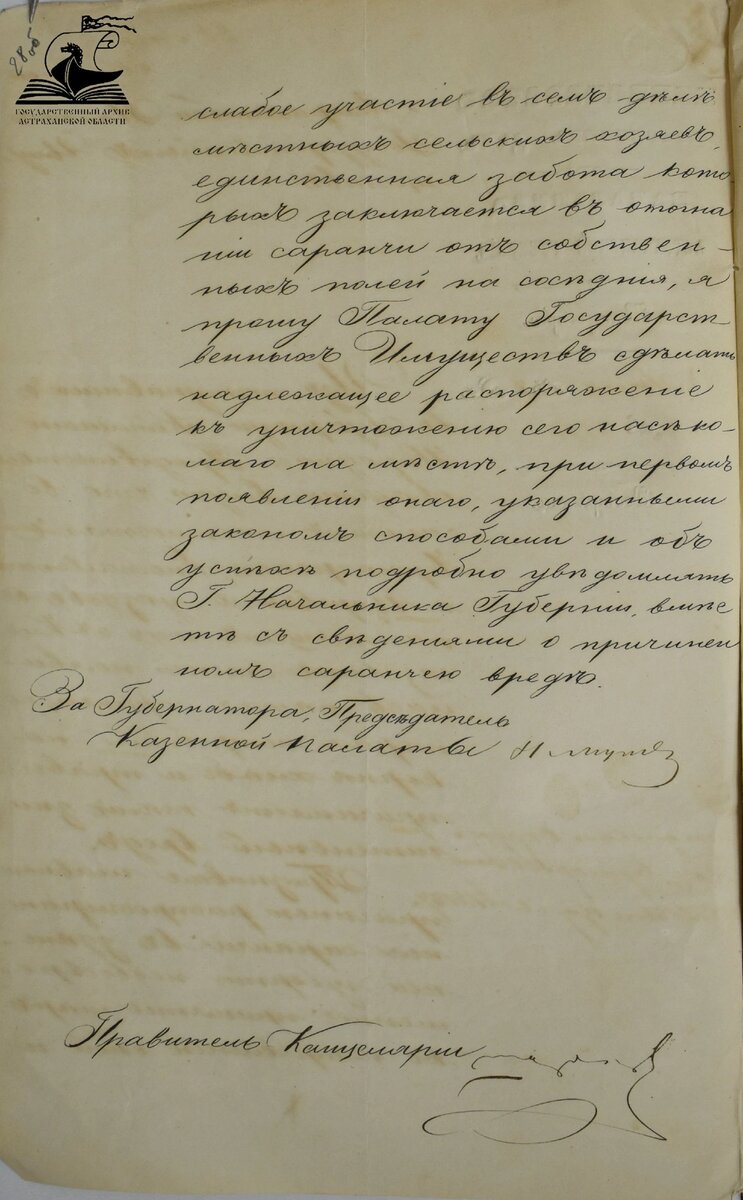 28об
ГОСУДАРСТВЕННЫЙ АРХИВ
АСТРАХАНСКОЙ ОБЛАСТИ
слабое участіе въ семъ дѣлѣ
мѣстныхъ сельскихъ хозяевъ,
единственная забота кото-
рыхъ заключается въ отогна
ніи саранчи отъ собствен-
ныхъ полей на сосѣднія, я
прошу Палату Государст-
венныхъ Имуществъ сдѣлать
надлежащее распоряженіе
къ уничтоженію сего насѣко-
маго на мѣстѣ, при первомъ
появленіи онаго, указанными
закономъ способами и объ
успѣхѣ подробно увѣдомлять
Г. Начальника Губерніи, вмѣс
тѣ съ свѣдениями о причинен
номъ саранчею вредѣ.
За Губернатора, Предсѣдатель
Казенной Палаты
Правитель Канцеляріи